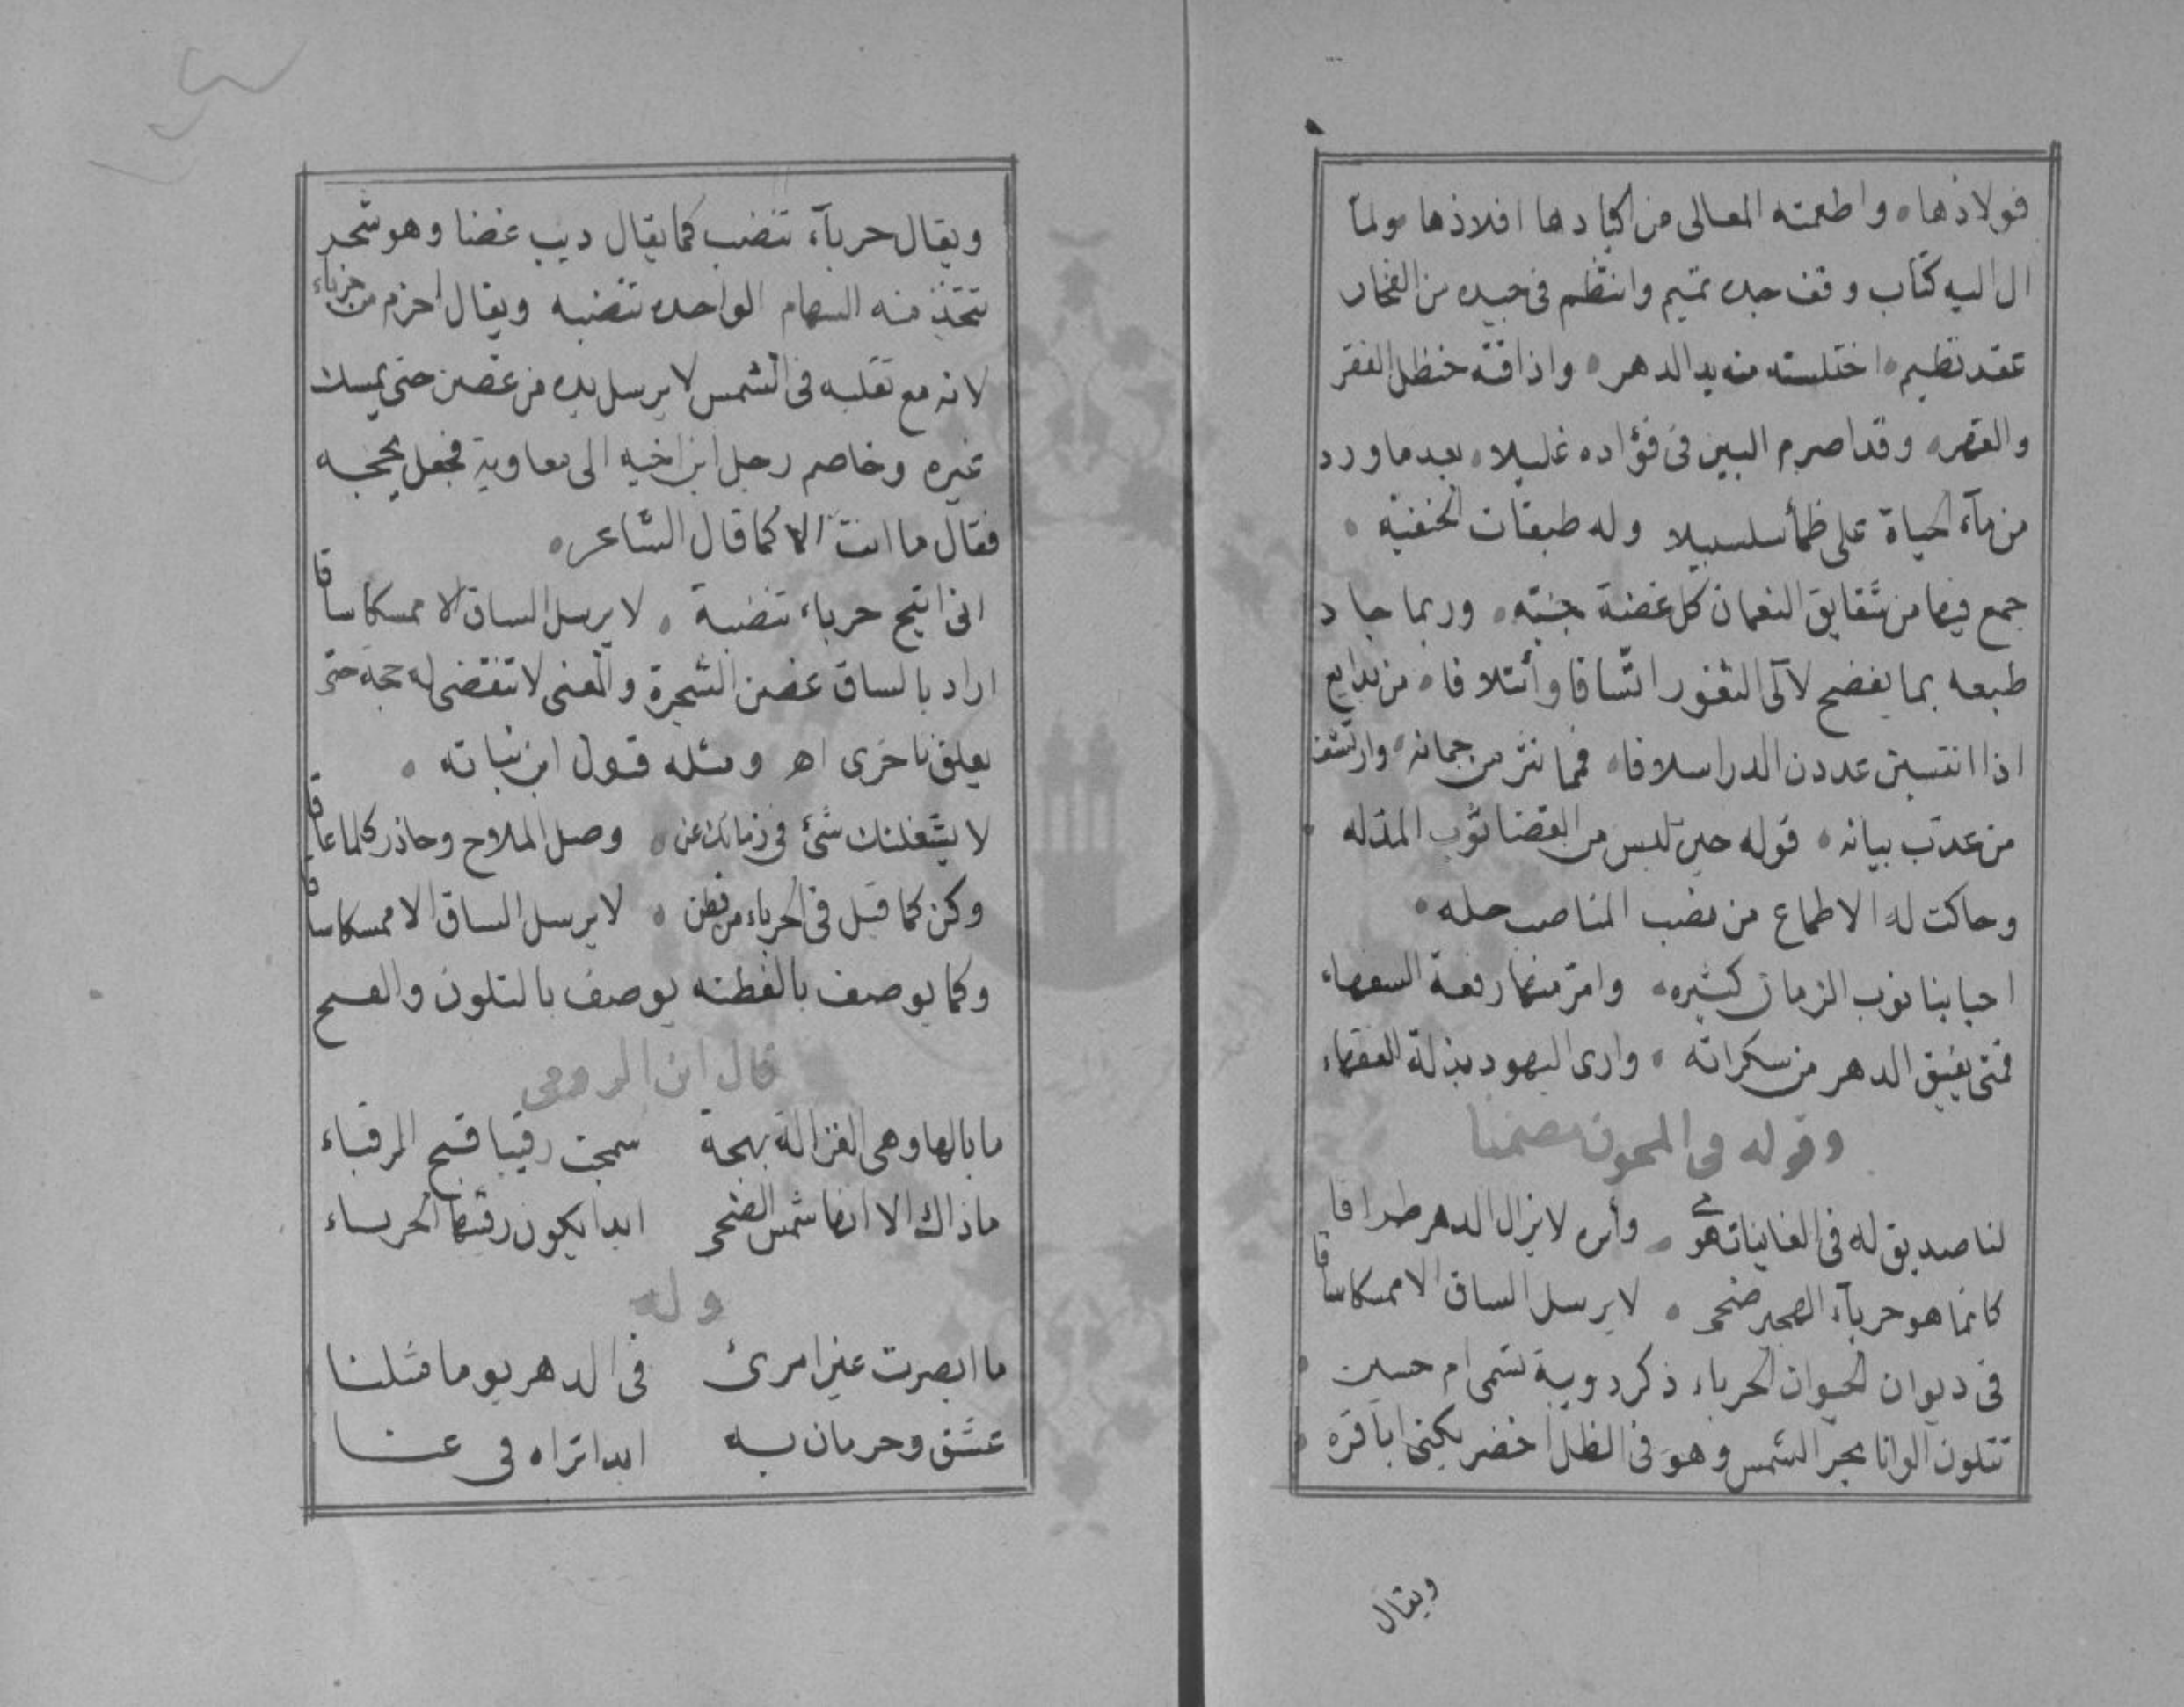 فولاذها۰ واطعمته المعالى من اكبادها افلاذها ۰ ولما
ال اليه كتاب وقف جده تميم وانتظم فى جيده من الفخار
عقد نظيم۰ اختلسته منه يد الدهر۰ واذاقته حنظل الفقر
والقهر۰ وقد اصرم البين فى فؤاده غليلا۰ بعد ما ورد
من مآء الحياة على ظمأ سلسبيلا وله طبقات الحنفيه ۰
جمع فيها من شقايق النعمان كل غضنة جنيّه۰ وربما جاد
طبعه بما يفضح لآلى الثغور اتساقا وأئتلافا ۰ من بدايع
اذا انتسبن عددن الدر اسلافا۰ فمما نثر من جمانه۰ وارتشف
من عذب بيانه ۰ قوله حين لبس من القضا ثوب المذله ۰
وحاكت له الاطماع من نصب المناصب حله ۰
احبابنا نوب الزمان كثيره۰ وامرّ منها رفعة السفهاء
فمتى يفيق الدهر من سكراته ۰ وارى اليهود بذلة الفقهاء
وقوله فى المجون مضمنا
لنا صديق له فى الغانيات هوى ۰ وأيره لا يزال الدهر طراقا
كانما هو حربآء الهجير ضحى ۰ لا يرسل الساق الا ممسكا ساقا
فى ديوان الحيوان الحرباء ذكر دويبة تسمى ام حبين ۰
تتلون الوانا بحر الشمس وهو فى الظل اخضر يكنى ابا قره ۰
ويقال
ويقال حربآء تنضب كما يقال ذيب غضنا وهو شجر
تتخذ منه السهام الواحده تنضبه ويقال احزم من حرباء
لانه مع تقلبه فى الشمس لا يرسل يده من غصن حتى يمسك
غيره وخاصم رجل ابن اخيه الى معاوية فجعل يحججه
فقال ما انت الا كما قال الشاعر۰
انى اتيح حرباء تنضبة ۰ لا يرسل الساق الا ممسكا ساقا
اراد بالساق غصن الشجرة والمعنى لا تنقضى له حجة حتى
يعلق باخرى اه ومثله قول ابن نباته ۰
لا يشغلنك شئ فى زمانك عن ۰ وصل الملاح وحاذر كلما عاقا
وكن كما قيل فى الحرباء من فطن ۰ لا يرسل الساق الا ممسكا ساقا
وكما يوصف بالفطنه يوصف بالتلون والقبح
قال ابن الرومى
ما بالها وهى الغزالة بهجة سمجت رقيبا قبح الرقباء
ما ذاك الا انها شمس الضحى ابدا يكون رقيبها الحرباء
وله
ما ابصرت عين امرئ فى الدهر يوما مثلنا
عشق وحرمان به ابدا تراه فى عنا